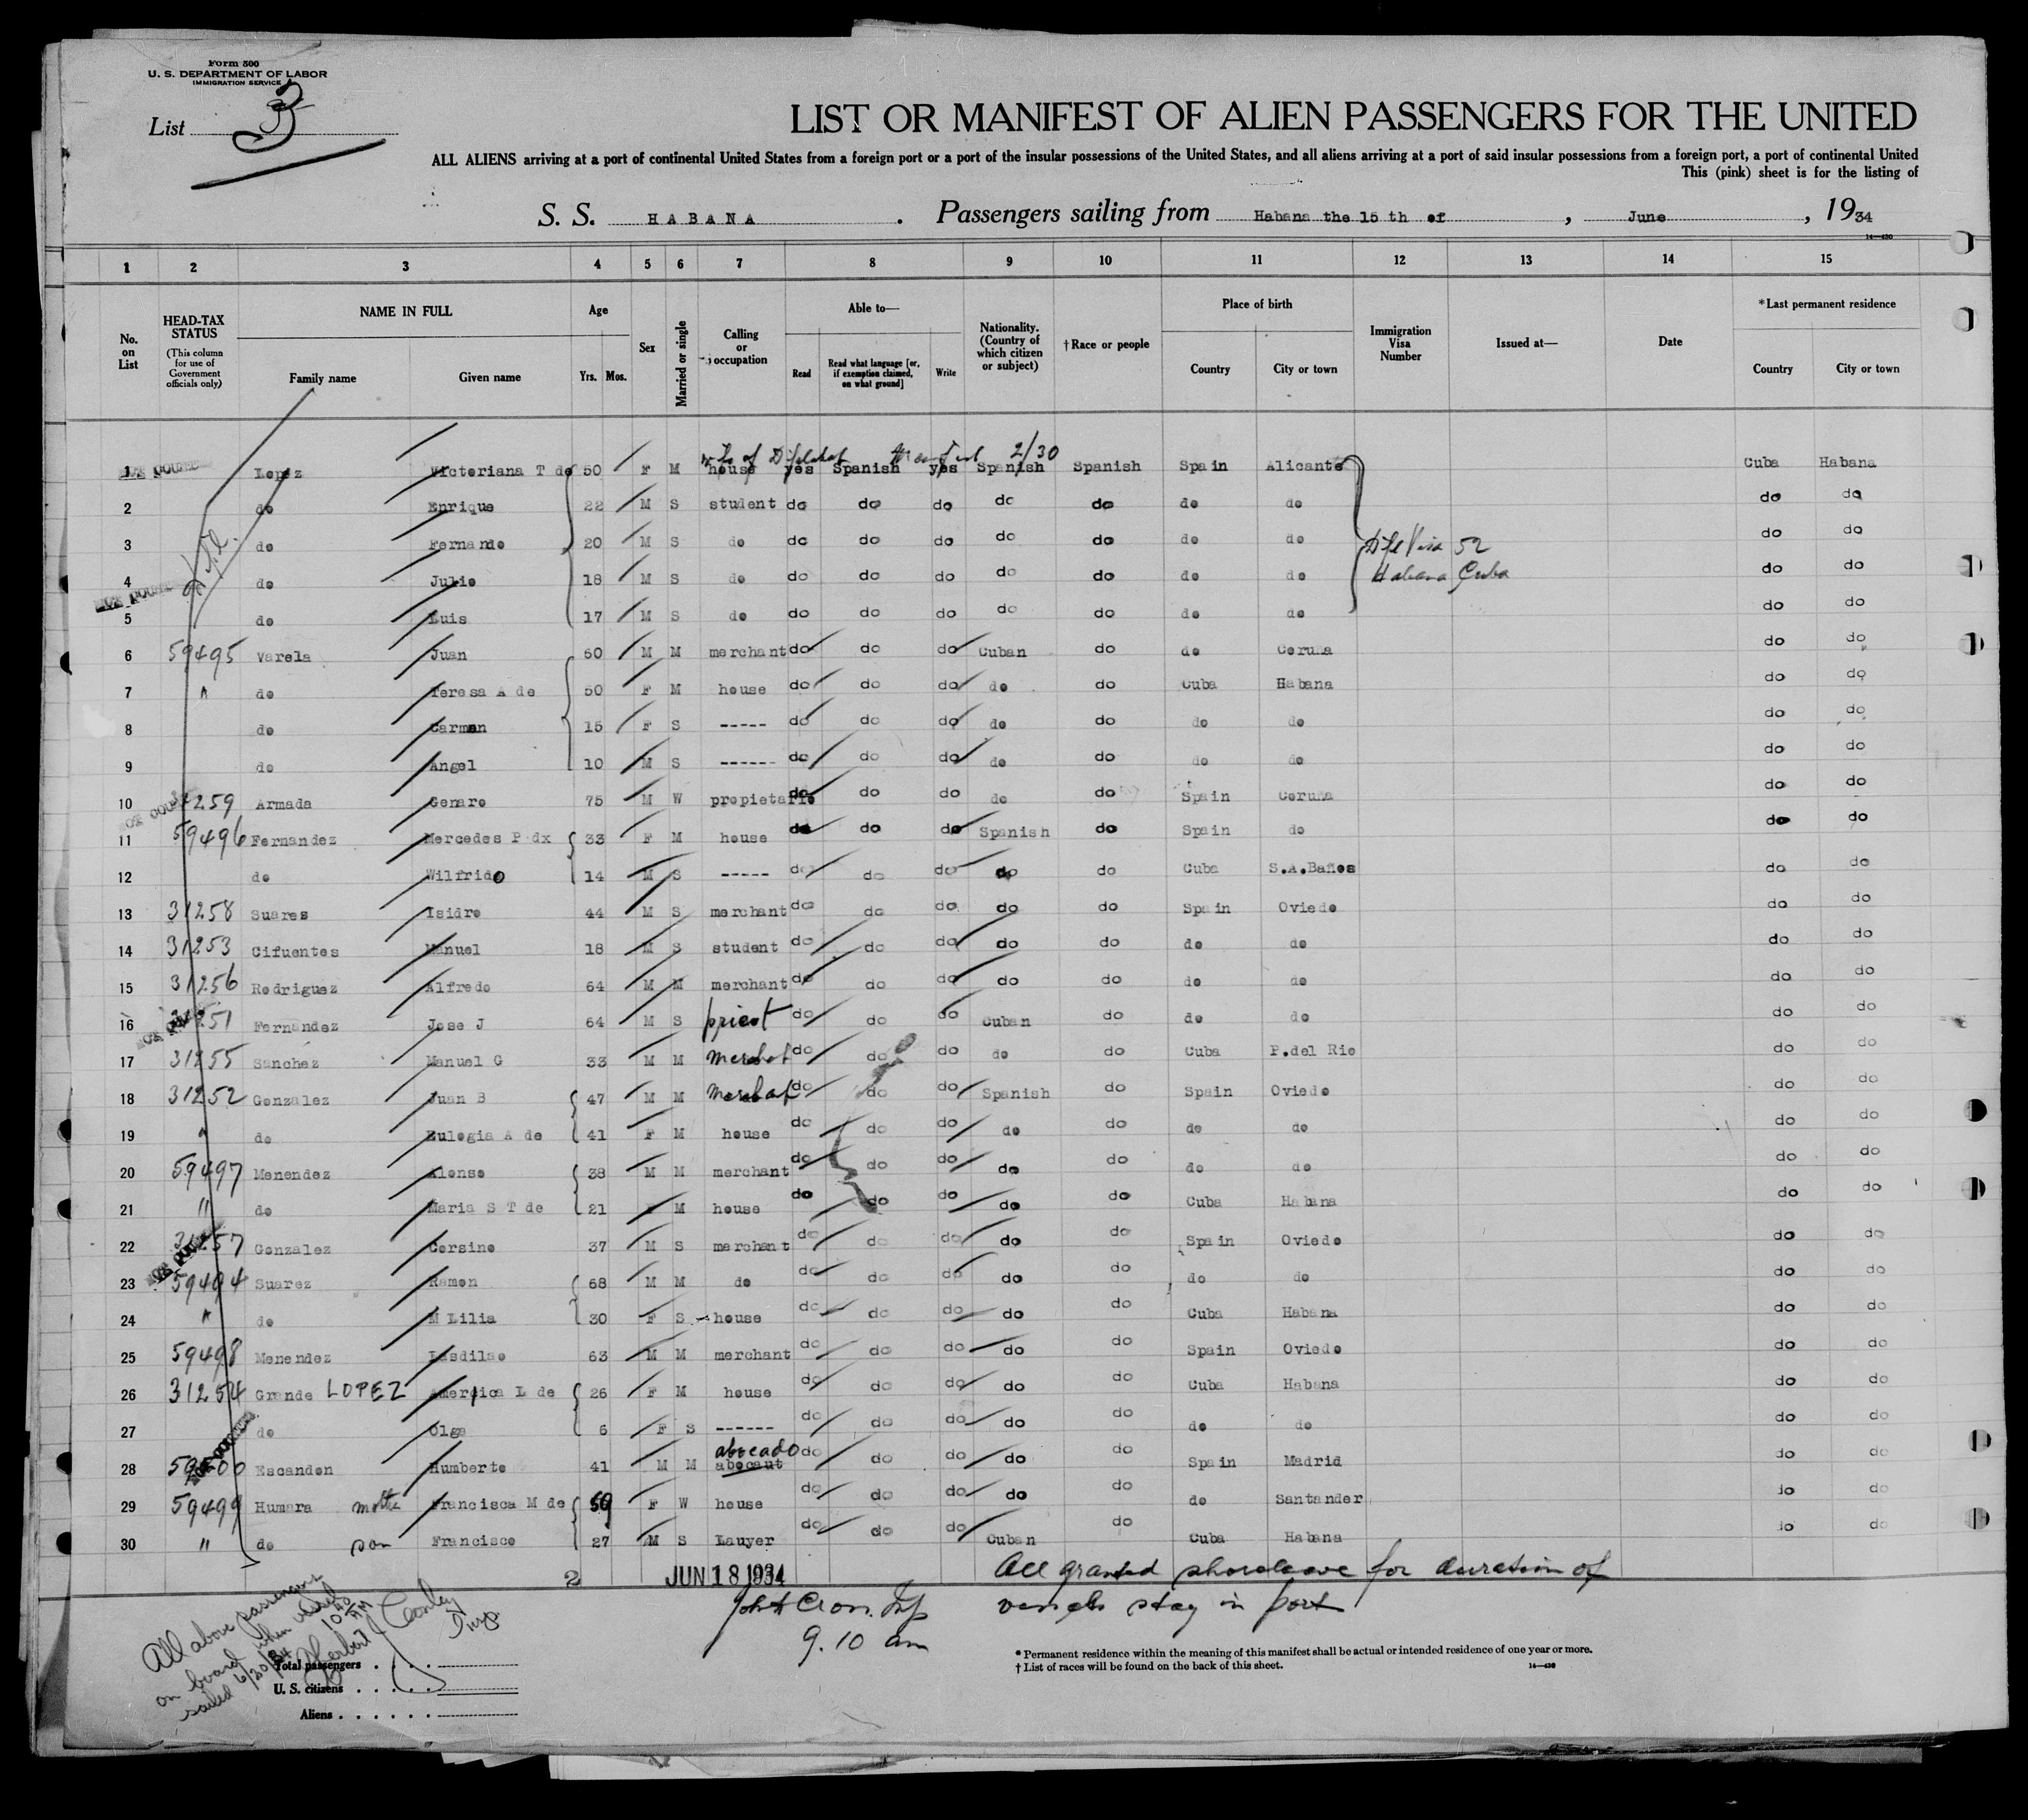 Form 500
U. S. DEPARTMENT OF LABOR
IMMIGRATION SERVICE
List 3
LIST OR MANIFEST OF ALIEN PASSENGERS FOR THE UNITED
ALL ALIENS arriving at a port of continental United States from a foreign port or a port of the insular possessions of the United States, and all aliens arriving at a port of said insular possessions from a foreign port, a port of continental United
This (pink) sheet is for the listing of
S. S. HABANA . Passengers sailing from Habana the 15 th of , June , 1934
14—430
1 2 3 4 5 6 7 8 9 10 11 12 13 14 15
No. on List
HEAD-TAX STATUS (This column for use of Government officials only)
NAME IN FULL
Family name Given name
Age
Yrs. Mos.
Sex
Married or single
Calling or occupation
Able to—
Read Read what language [or, if exemption claimed, on what ground] Write
Nationality. (Country of which citizen or subject)
†Race or people
Place of birth
Country City or town
Immigration Visa Number
Issued at—
Date
*Last permanent residence
Country City or town
2/30
1 Lopez Victoriana T de 50 F M house yes Spanish yes Spanish Spanish Spain Alicante Cuba Habana
2 do Enrique 22 M S student do do do do do do do do do
3 do Fernando 20 M S do do do do do do do do do do
Visa 52
4 do Julio 18 M S do do do do do do do do do do
Habana Cuba
5 do Luis 17 M S do do do do do do do do do do
6 59495 Varela Juan 60 M M merchant do do do Cuban do do Coruña do do
7 " do Teresa A de 50 F M house do do do do do Cuba Habana do do
8 do Carmen 15 F S ----- do do do do do do do do do
9 do Angel 10 M S ------ do do do do do do do do do
10 31259 Armada Genaro 75 M W propietario do do do do do Spain Coruña do do
11 59496 Fernandez Mercedes P dx 33 F M house do do do Spanish do Spain do do do
12 do Wilfrido 14 M S ----- do do do do do Cuba S.A.Baños do do
13 31258 Suares Isidro 44 M S merchant do do do do do Spain Oviedo do do
14 31253 Cifuentes Manuel 18 M S student do do do do do do do do do
15 31256 Rodriguez Alfredo 64 M M merchant do do do do do do do do do
16 31251 Fernandez Jose J 64 M S priest do do do Cuban do do do do do
17 31255 Sanchez Manuel G 33 M M merchat do do do do do Cuba P.del Rio do do
18 31252 Gonzalez Juan B 47 M M merchat do do do Spanish do Spain Oviedo do do
19 " do Eulogia A de 41 F M house do do do do do do do do do
20 59497 Menendez Alonso 38 M M merchant do do do do do do do do do
21 " do Maria S T de 21 F M house do do do do do Cuba Habana do do
22 31257 Gonzalez Corsino 37 M S merchant do do do do do Spain Oviedo do do
23 59494 Suarez Ramon 68 M M do do do do do do do do do do
24 " do M Lilia 30 F S house do do do do do Cuba Habana do do
25 59498 Menendez Ladilao 63 M M merchant do do do do do Spain Oviedo do do
26 31254 Grande LOPEZ America L de 26 F M house do do do do do Cuba Habana do do
27 do Olga 6 F S ------ do do do do do do do do do
abocado
28 59500 Escandon Humberto 41 M M abocaut do do do do do Spain Madrid do do
29 59499 Humara mother Francisca M de 59 F W house do do do do do do Santander do do
30 " do son Francisco 27 M S Lauyer do do do Cuban do Cuba Habana do do
2 JUN 18 1934
All granted shoreleave for duration of
vessels stay in port
9.10 am
All above passengers
on board when vessel
sailed 6/20/34 10 AM
Herbert J Conley
Insp
Total passengers
U. S. citizens
Aliens
* Permanent residence within the meaning of this manifest shall be actual or intended residence of one year or more.
† List of races will be found on the back of this sheet. 14—430